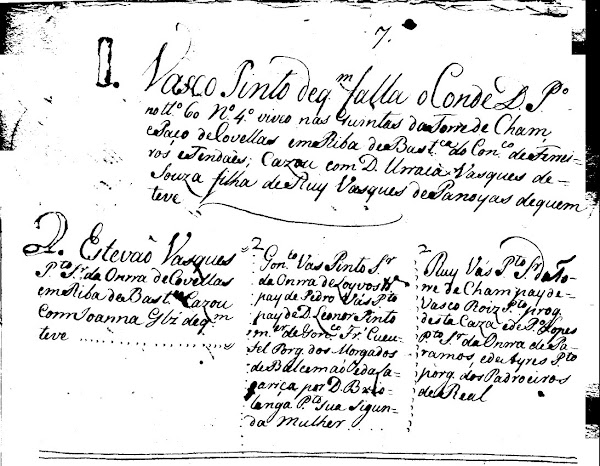 7.
1. Vasco Pinto de q.m falla o Conde D. P.o
no tt.o 60 N.o 4.o viveo nas quintas da Torre de Cham
e Paço de Covellas em Riba de Bast.ca do Con.co de Ferrei-
rós e Tendaes; Cazou com D. Urraca Vasques de-
Souza filha de Ruy Vasques de Panoyas de quem
teve
2. Estevaõ Vasques
P.to S.r da Onrra de Covellas
em Riba de Bast.ca Cazou
com Joanna Glz de q.m
teve
2
Gon.co Vas Pinto S.r
da Onrra de Loyvos
pay de Pedro Vás P.to
pay de D. Leonor Pinto
m.er de Gon.co Fr.
Porg. dos Morgados
de Balcemaõ e da
por D.
P.to sua Sigun-
da Mulher
2
Ruy Vás P.to S.r da To-
rre de Cham pay de-
Vasco Roiz P.to prog
desta Caza e de P.o Lopes
P.to S.r da Onrra de Pa-
ramos, e de Ayres P.to
porg. dos Padroeiros
de Real